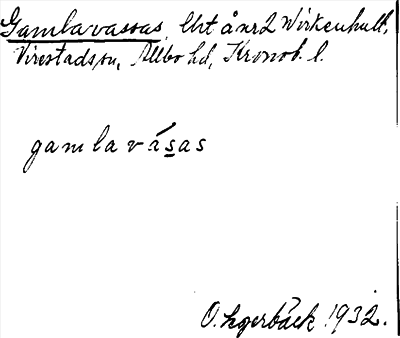 Gamlavassas, Urt å nr 2 Wirkenhult,
Virestads sn, Allbo hd, Kronob. l.
gamlavásas
O. Lgerbäck 1932.